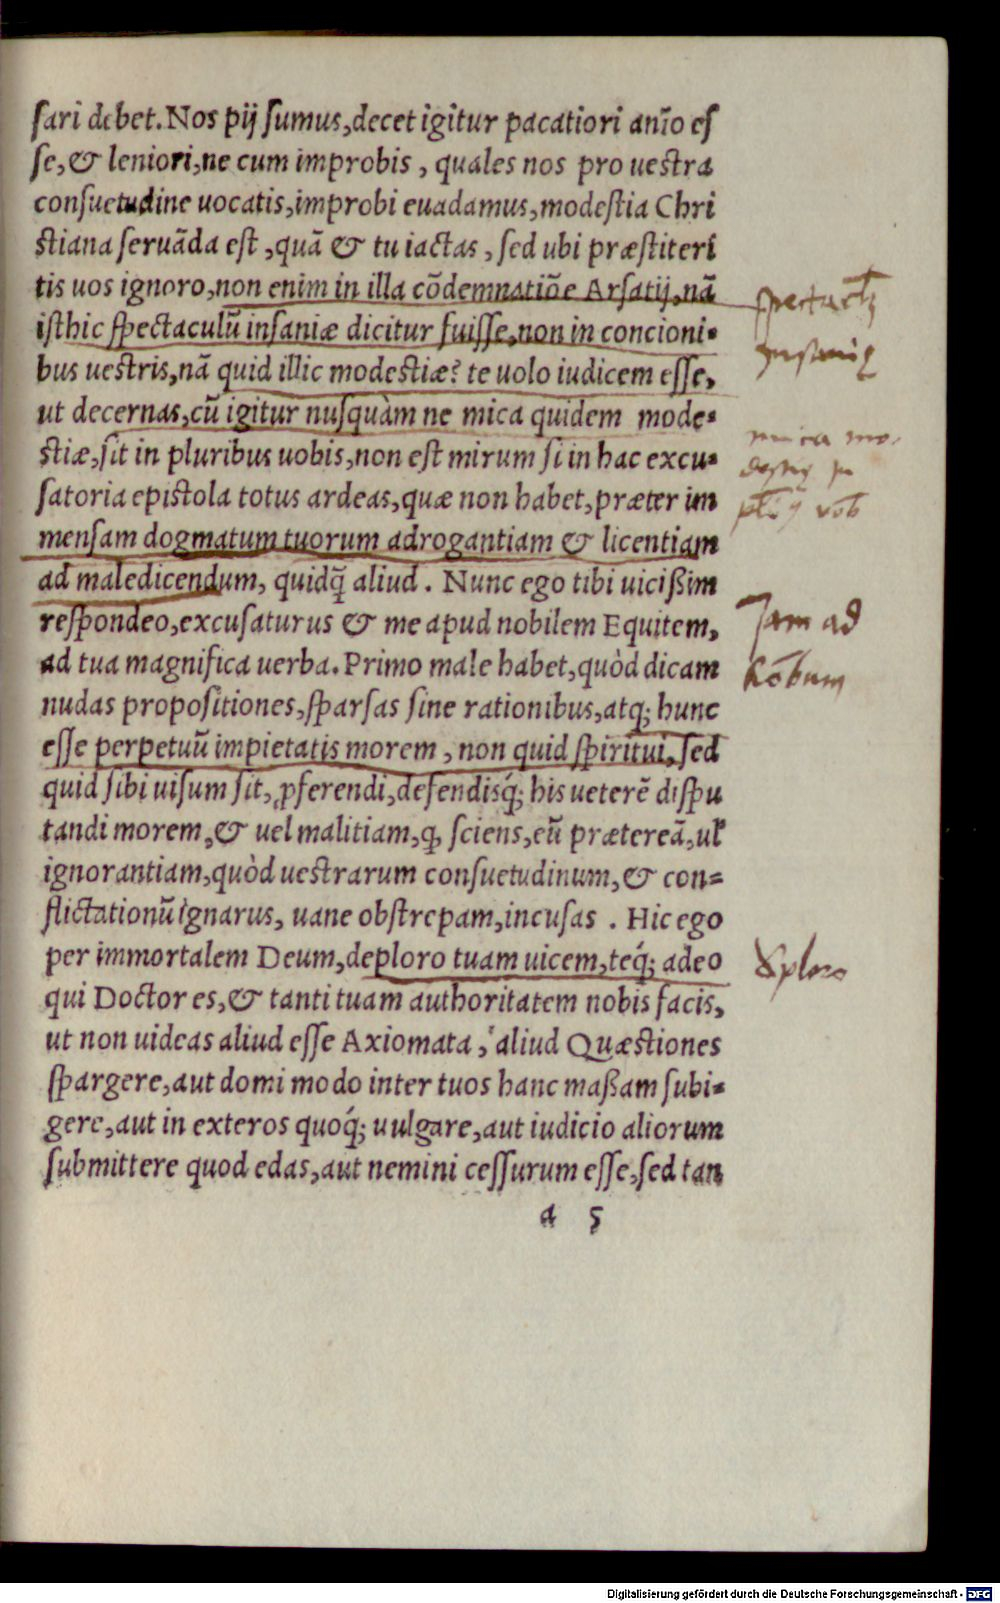 ſari debet. Nos pij ſumus, decet igitur pacatiori anĩo eſ
ſe, & leniori, ne cum improbis, quales nos pro ueſtra
conſuetudine uocatis, improbi euadamus, modeſtia Chri
ſtiana ſeruãda eſt, quã & tu iactas, ſed ubi præſtiteri
tis uos ignoro, non enim in illa cõdemnatiõe Arſatij, nã
iſthic ſpectaculũ inſaniæ dicitur fuiſſe, non in concioni=
bus ueſtris, nã quid illic modeſtiæ? te uolo iudicem eſſe,
ut decernas, cũ igitur nuſquàm ne mica quidem mode=
ſtiæ, ſit in pluribus uobis, non eſt mirum ſi in hac excu=
ſatoria epiſtola totus ardeas, quæ non habet, præter im
menſam dogmatum tuorum adrogantiam & licentiam
ad maledicendum, quidq̃ aliud. Nunc ego tibi uicißim
reſpondeo, excuſaturus & me apud nobilem Equitem,
ad tua magnifica uerba. Primo male habet, quòd dicam
nudas propoſitiones, ſparſas ſine rationibus, atq; hunc
eſſe perpetuũ impietatis morem, non quid ſpiritui, ſed
quid ſibi uiſum ſit, ꝓferendi, defendiſq́; his ueterẽ diſpu
tandi morem, & uel malitiam, ꝙ ſciens, eũ prætereã, ul̃
ignorantiam, quòd ueſtrarum conſuetudinum, & con=
flictationũ ignarus, uane obſtrepam, incuſas. Hic ego
per immortalem Deum, deploro tuam uicem, teq́; adeo
qui Doctor es, & tanti tuam authoritatem nobis facis,
ut non uideas aliud eſſe Axiomata, aliud Quæſtiones
ſpargere, aut domi modo inter tuos hanc maßam ſubi=
gere, aut in exteros quoq́; uulgare, aut iudicio aliorum
ſubmittere quod edas, aut nemini ceſſurum eſſe, ſed tan
a 5
mica mo
Jam ad
Deploro
Digitalisierung gefördert durch die Deutsche Forschungsgemeinschaft - DFG